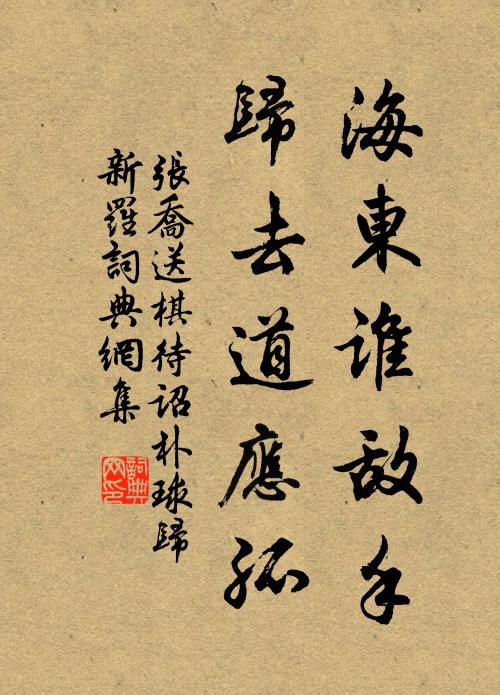 海東誰敵手
歸去道應孤
張喬送棋待詔朴球歸
新羅詞典網集
詞典
网印